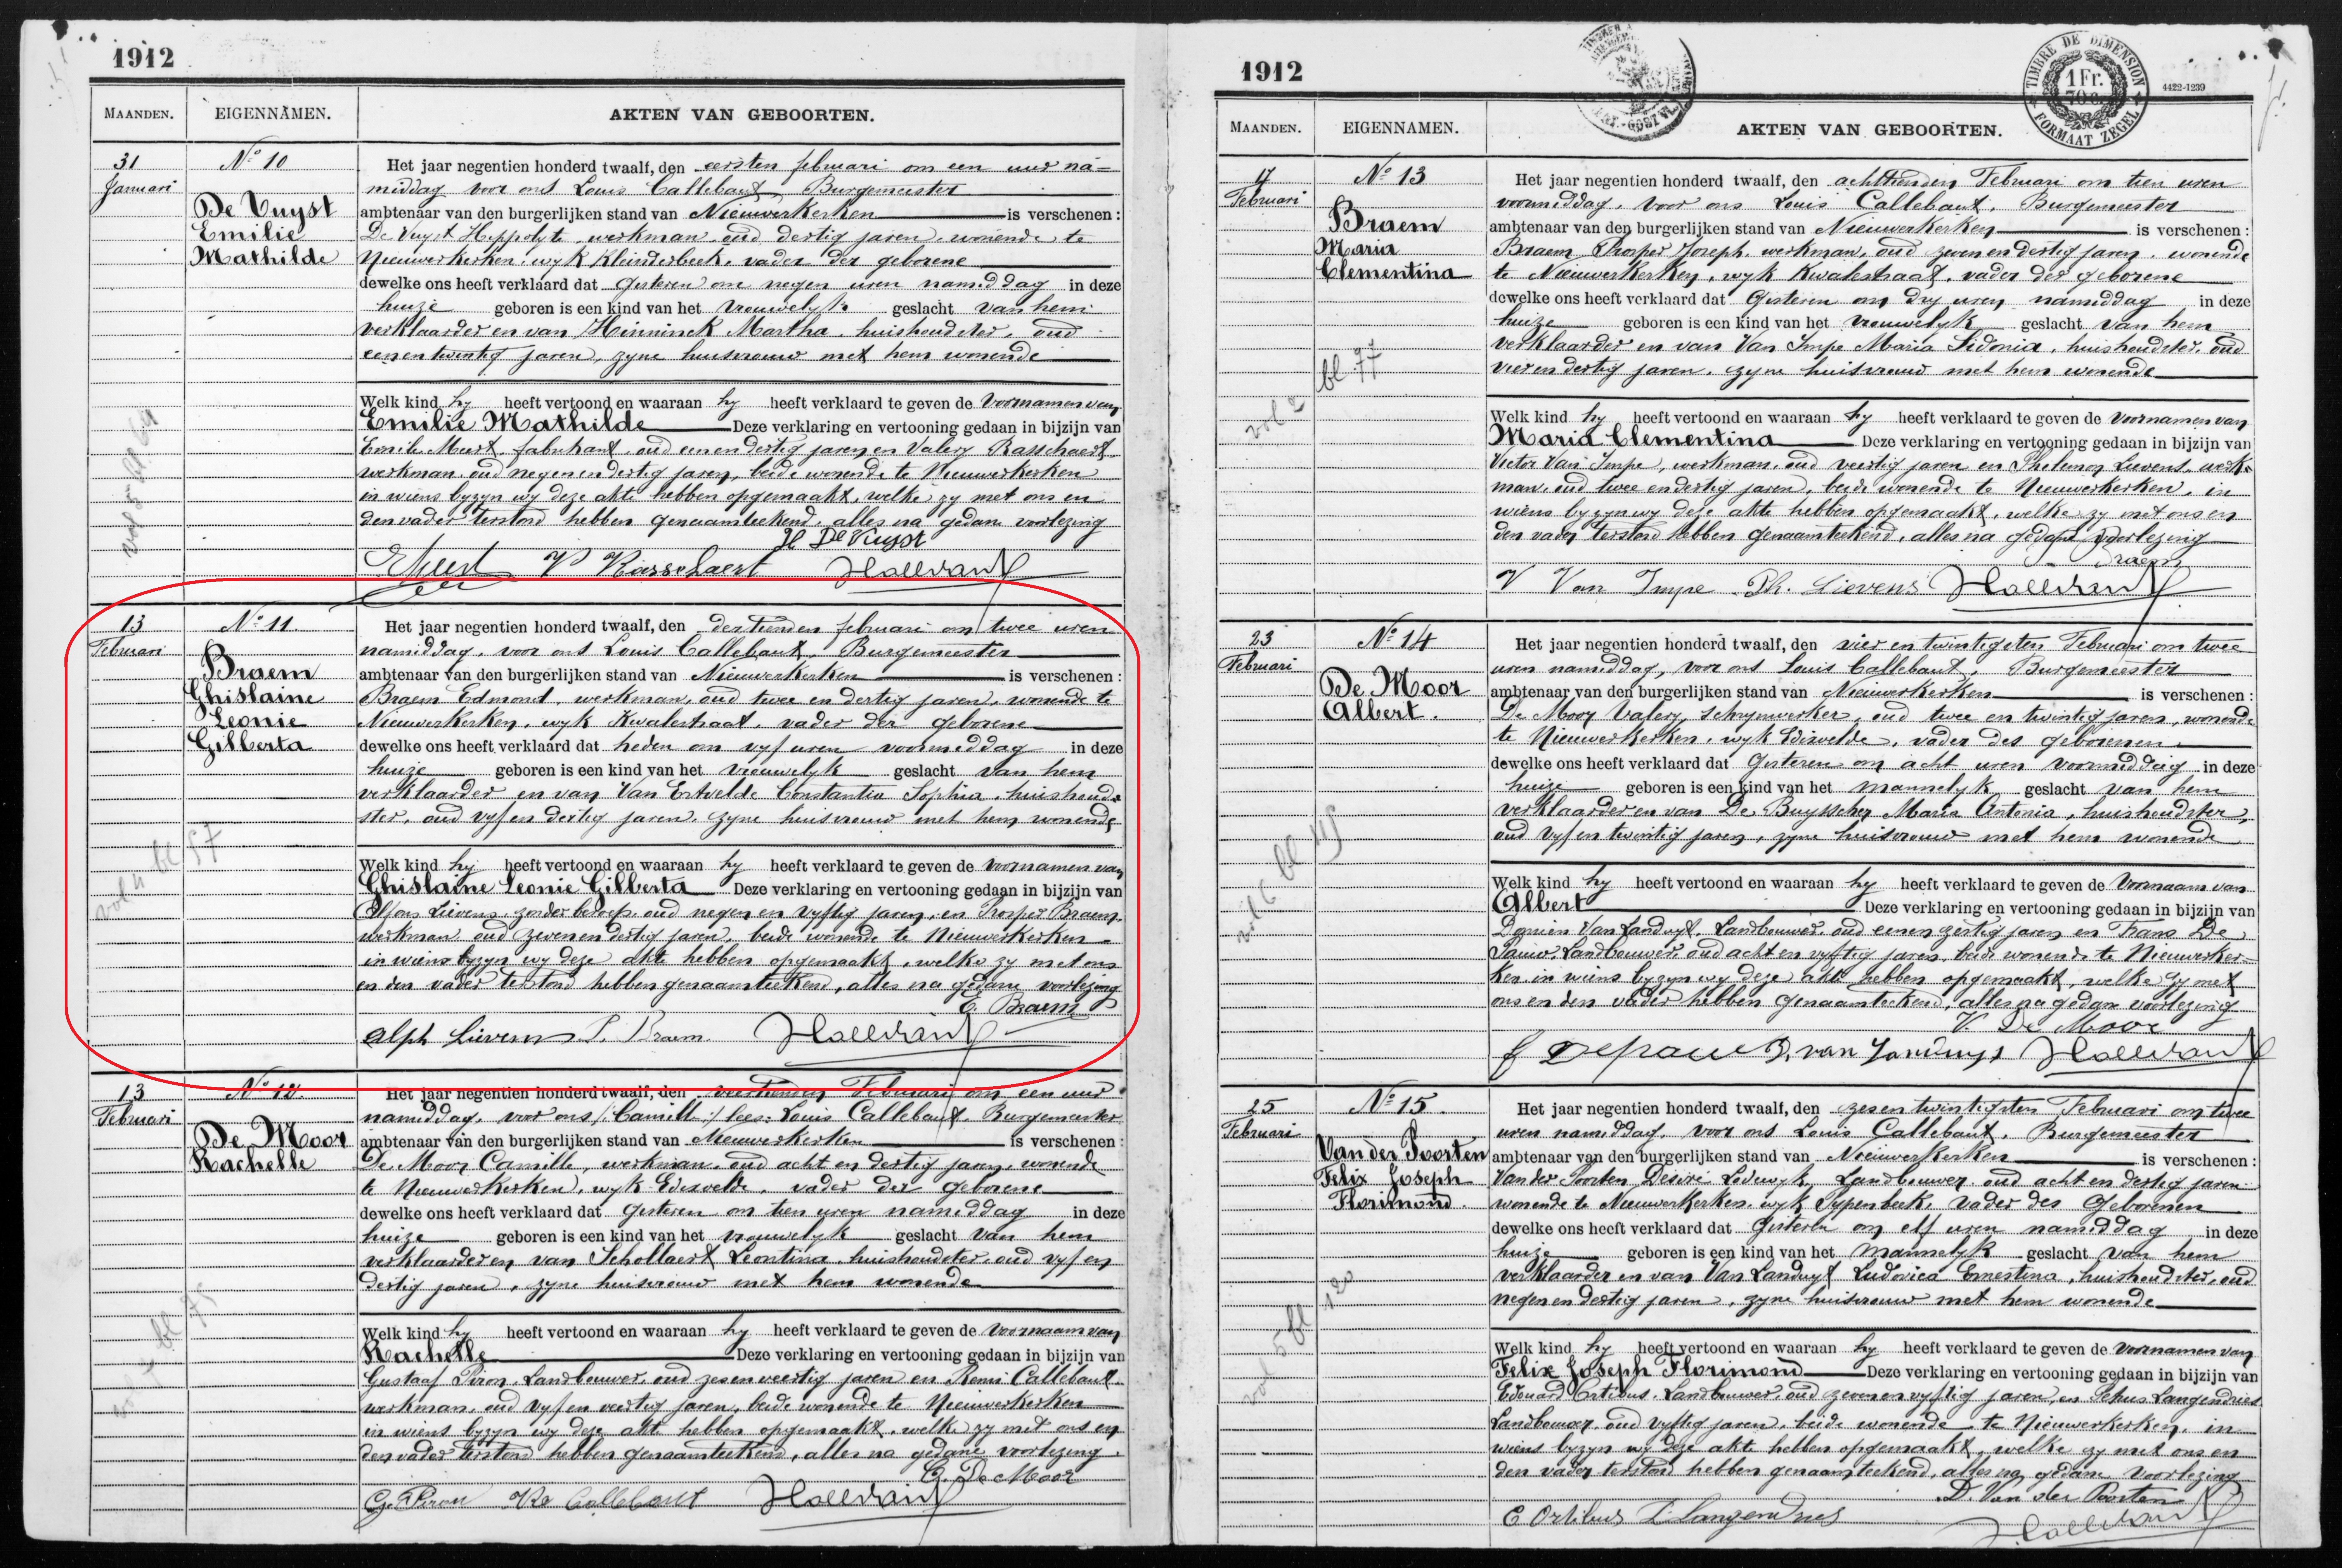 1912
MAANDEN.
EIGENNAMEN.
AKTEN VAN GEBOORTEN.
31
Januari
Nº 10
De Vuyst
Emilie
Mathilde
Het jaar negentien honderd twaalf, den eersten februari om een uur na-
middag voor ons Louis Callebaut, Burgemeester
ambtenaar van den burgerlijken stand van Nieuwerkerken is verschenen:
De Vuyst Hippolyte, werkman, oud dertig jaren, wonende te
Nieuwerkerken, wyk Kleinderbeek, vader der geborene
dewelke ons heeft verklaard dat Gisteren om negen uren namiddag in deze
huize geboren is een kind van het vrouwelyk geslacht van hem
verklaarder en van Hinninck Martha, huishoudster, oud
eenentwintig jaren, zyne huisvrouw met hem wonende
Welk kind hy heeft vertoond en waaraan hy heeft verklaard te geven de voornamen van
Emilie Mathilde Deze verklaring en vertooning gedaan in bijzijn van
Emile Meert, fabrikant, oud eenendertig jaren en Valery Rasschaert
werkman, oud negenendertig jaren, beide wonende te Nieuwerkerken
in wiens byzyn wy deze akte hebben opgemaakt, welke zy met ons en
den vader terstond hebben genaamteekend, alles na gedane voorlezing
H De Vuyst
EMeert V Rasschaert
vol 5 bl 64
13
Februari
Nº 11
Braem
Ghislaine
Leonie
Gilberta
Het jaar negentien honderd twaalf, den dertienden februari om twee uren
namiddag, voor ons Louis Callebaut, Burgemeester
ambtenaar van den burgerlijken stand van Nieuwerkerken is verschenen:
Braem Edmond, werkman, oud twee en dertig jaren, wonende te
Nieuwerkerken, wyk Kwalestraat, vader der geborene
dewelke ons heeft verklaard dat heden om vyf uren voormiddag in deze
huize geboren is een kind van het vrouwelyk geslacht van hem
verklaarder en van Van Estvelde Constantia Sophia, huishoud-
ster, oud vyf en dertig jaren, zyne huisvrouw met hem wonende
Welk kind hy heeft vertoond en waaraan hy heeft verklaard te geven de voornamen van
Ghislaine Leonie Gilberta Deze verklaring en vertooning gedaan in bijzijn van
Alfons Lievens, zonder beroep, oud negen en vyftig jaren, en Prosper Braem,
werkman, oud zevenendertig jaren, beide wonende te Nieuwerkerken
in wiens byzyn wy deze akte hebben opgemaakt, welke zy met ons
en den vader terstond hebben genaamteekend, alles na gedane voorlezing
E. Braem
Alph Lievens P. Braem
vol 4 bl 57
13
Februari
Nº 12
De Moor
Rachelle
Het jaar negentien honderd twaalf, den veertienden Februari om een uur
namiddag, voor ons /:Camill:/ lees: Louis Callebaut, Burgemeester
ambtenaar van den burgerlijken stand van Nieuwerkerken is verschenen:
De Moor Camille, werkman, oud acht en dertig jaren, wonende
te Nieuwerkerken, wyk Edixvelde, vader der geborene
dewelke ons heeft verklaard dat Gisteren om tien uren namiddag in deze
huize geboren is een kind van het vrouwelyk geslacht van hem
verklaarder en van Schollaert Leontina, huishoudster, oud vyf en
dertig jaren, zyne huisvrouw met hem wonende
Welk kind hy heeft vertoond en waaraan hy heeft verklaard te geven de voornaam van
Rachelle Deze verklaring en vertooning gedaan in bijzijn van
Gustaaf Piron, Landbouwer, oud zesenveertig jaren en Remi Callebaut
werkman, oud vyf en veertig jaren, beide wonende te Nieuwerkerken
in wiens byzyn wy deze akte hebben opgemaakt, welke zy met ons en
den vader terstond hebben genaamteekend, alles na gedane voorlezing
C. De Moor
G. Piron Re Callebaut
bl 75
1912
TIMBRE DE DIMENSION
1 Fr.
70 c.
FORMAAT ZEGEL
4422-1239
MAANDEN.
EIGENNAMEN.
AKTEN VAN GEBOORTEN.
17
Februari
Nº 13
Braem
Maria
Clementina
Het jaar negentien honderd twaalf, den achttienden Februari om tien uren
voormiddag, voor ons Louis Callebaut, Burgemeester
ambtenaar van den burgerlijken stand van Nieuwerkerken is verschenen:
Braem Prosper Joseph, werkman, oud zeven en dertig jaren, wonende
te Nieuwerkerken, wyk Kwalestraat, vader der geborene
dewelke ons heeft verklaard dat Gisteren om dry uren namiddag in deze
huize geboren is een kind van het vrouwelyk geslacht van hem
verklaarder en van Van Impe Maria Sidonia, huishoudster, oud
vier en dertig jaren, zyne huisvrouw met hem wonende
Welk kind hy heeft vertoond en waaraan hy heeft verklaard te geven de voornamen van
Maria Clementina Deze verklaring en vertooning gedaan in bijzijn van
Victor Van Impe, werkman, oud veertig jaren en Philemon Lievens, werk-
man, oud twee en dertig jaren, beide wonende te Nieuwerkerken, in
wiens byzyn wy deze akte hebben opgemaakt, welke zy met ons en
den vader terstond hebben genaamteekend, alles na gedane voorlezing
Braem
V Van Impe Ph. Lievens
vol 2 bl 77
23
Februari
Nº 14
De Moor
Albert.
Het jaar negentien honderd twaalf, den vier en twintigsten Februari om twee
uren namiddag, voor ons Louis Callebaut, Burgemeester
ambtenaar van den burgerlijken stand van Nieuwerkerken is verschenen:
De Moor Valery, schrynwerker, oud twee en twintig jaren, wonende
te Nieuwerkerken, wyk Edixvelde, vader des geborenen
dewelke ons heeft verklaard dat Gisteren om acht uren voormiddag in deze
huize geboren is een kind van het mannelyk geslacht van hem
verklaarder en van De Buysscher Maria Antonia, huishoudster,
oud vyf en twintig jaren, zyne huisvrouw met hem wonende
Welk kind hy heeft vertoond en waaraan hy heeft verklaard te geven de voornaam van
Albert Deze verklaring en vertooning gedaan in bijzijn van
Damien Van Landuyt, Landbouwer, oud eenen zestig jaren en Frans De
Pauw, Landbouwer, oud acht en vyftig jaren, beide wonende te Nieuwerker-
ken in wiens byzyn wy deze akte hebben opgemaakt, welke zy met
ons en den vader hebben genaamteekend, alles na gedane voorlezing
V. De Moor
f Depauw D, van Landuyt
vol 6 bl 119
25
Februari
Nº 15.
Van der Poorten
Felix Joseph
Florimond.
Het jaar negentien honderd twaalf, den zesentwintigsten Februari om twee
uren namiddag, voor ons Louis Callebaut, Burgemeester
ambtenaar van den burgerlijken stand van Nieuwerkerken is verschenen:
Van der Poorten Désiré Lodewyk, Landbouwer, oud acht en dertig jaren
wonende te Nieuwerkerken, wyk Papenbeek, vader des geborenen
dewelke ons heeft verklaard dat Gisteren om elf uren namiddag in deze
huize geboren is een kind van het mannelyk geslacht van hem
verklaarder en van Van Landuyt Ludovica Ernestina, huishoudster, oud
negen en dertig jaren, zyne huisvrouw met hem wonende
Welk kind hy heeft vertoond en waaraan hy heeft verklaard te geven de voornamen van
Felix Joseph Florimond Deze verklaring en vertooning gedaan in bijzijn van
Edouard Ortibus, Landbouwer, oud zevenenvyftig jaren, en Petrus Langendries
Landbouwer, oud vyftig jaren, beide wonende te Nieuwerkerken, in
wiens byzyn wy deze akte hebben opgemaakt, welke zy met ons en
den vader terstond hebben genaamteekend, alles na gedane voorlezing
D. Van der Poorten
E Ortibus P Langendries
vol 5 bl 120